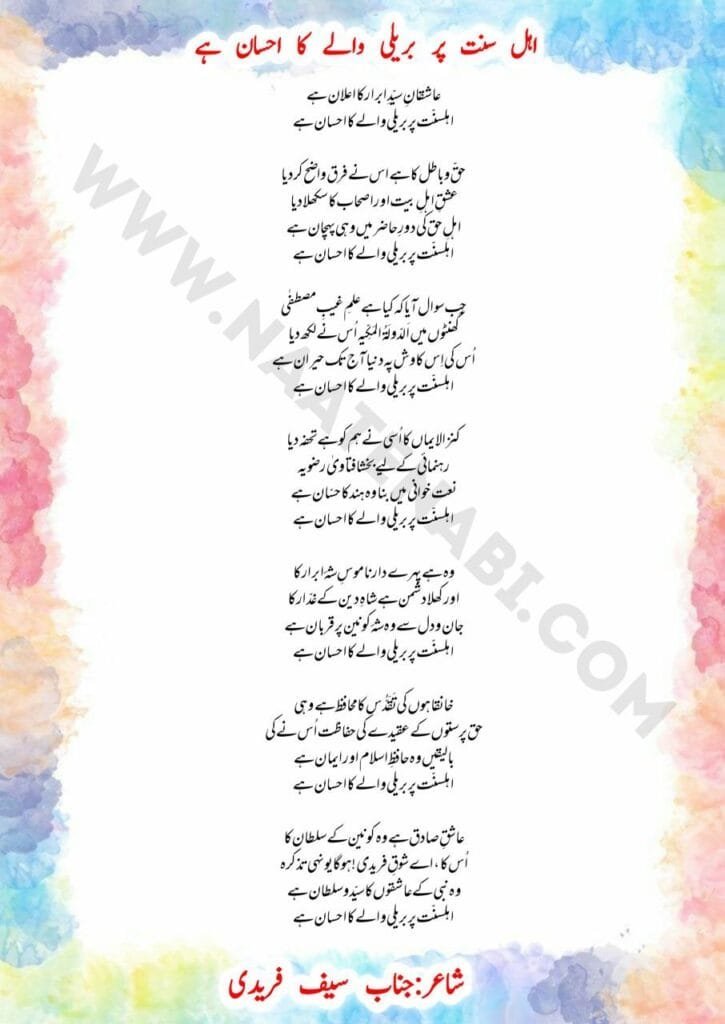 اہل سنت پر بریلی والے کا احسان ہے
عاشقانِ سیّد ابرار کا اعلان ہے
اہلسنّت پر بریلی والے کا احسان ہے
حقّ و باطل کا ہے اس نے فرق واضح کر دیا
عشقِ اہلِ بیت اور اصحاب کا سکھلا دیا
اہلِ حق کی دورِ حاضر میں وہی پہچان ہے
اہلسنّت پر بریلی والے کا احسان ہے
جب سوال آیا کہ کیا ہے علمِ غیبِ مصطفٰی
گھنٹوں میں اَلدّولَۃُ المَکِّیہ اُس نے لکھ دیا
اُس کی اِس کاوش پہ دنیا آج تک حیران ہے
اہلسنّت پر بریلی والے کا احسان ہے
کنزالایماں کا اُسی نے ہم کو ہے تحفہ دیا
رہنمائی کے لیے بخشا فتاویٰ رضویہ
نعت خوانی میں بنا وہ ہند کا حسّان ہے
اہلسنّت پر بریلی والے کا احسان ہے
وہ ہے پہرے دار ناموسِ شہِ ابرار کا
اور کھلا دشمن ہے شاہِ دین کے غدّار کا
جان و دل سے وہ شہِ کونین پر قربان ہے
اہلسنّت پر بریلی والے کا احسان ہے
خانقاہوں کی تَقَدُّس کا محافظ ہے وہی
حق پرستوں کے عقیدے کی حفاظت اُس نے کی
بالیقیں وہ حافظِ اسلام اور ایمان ہے
اہلسنّت پر بریلی والے کا احسان ہے
عاشقِ صادق ہے وہ کونین کے سلطان کا
اُس کا، اے شوقِ فریدی! ہوگا یونہی تذکرہ
وہ نبی کے عاشقوں کا سیّد و سلطان ہے
اہلسنّت پر بریلی والے کا احسان ہے
شاعر:جناب سیف فریدی
WWW.NAATENABI.COM